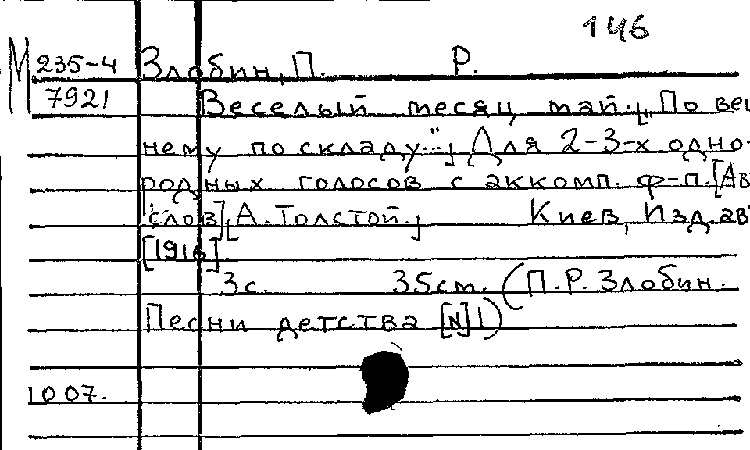 146
М 235-4 Злобин, П. Р.
7921 Веселый месяц май „По веш
нему по складу..." Для 2-3-х одно-
родных голосов с аккомп. ф-п. [Ав
слов] [А. Толстой.] Киев, Изд. ав
[1916].
3 с. 35 см. (П. Р. Злобин.
Песни детства [№] 1)
1007.